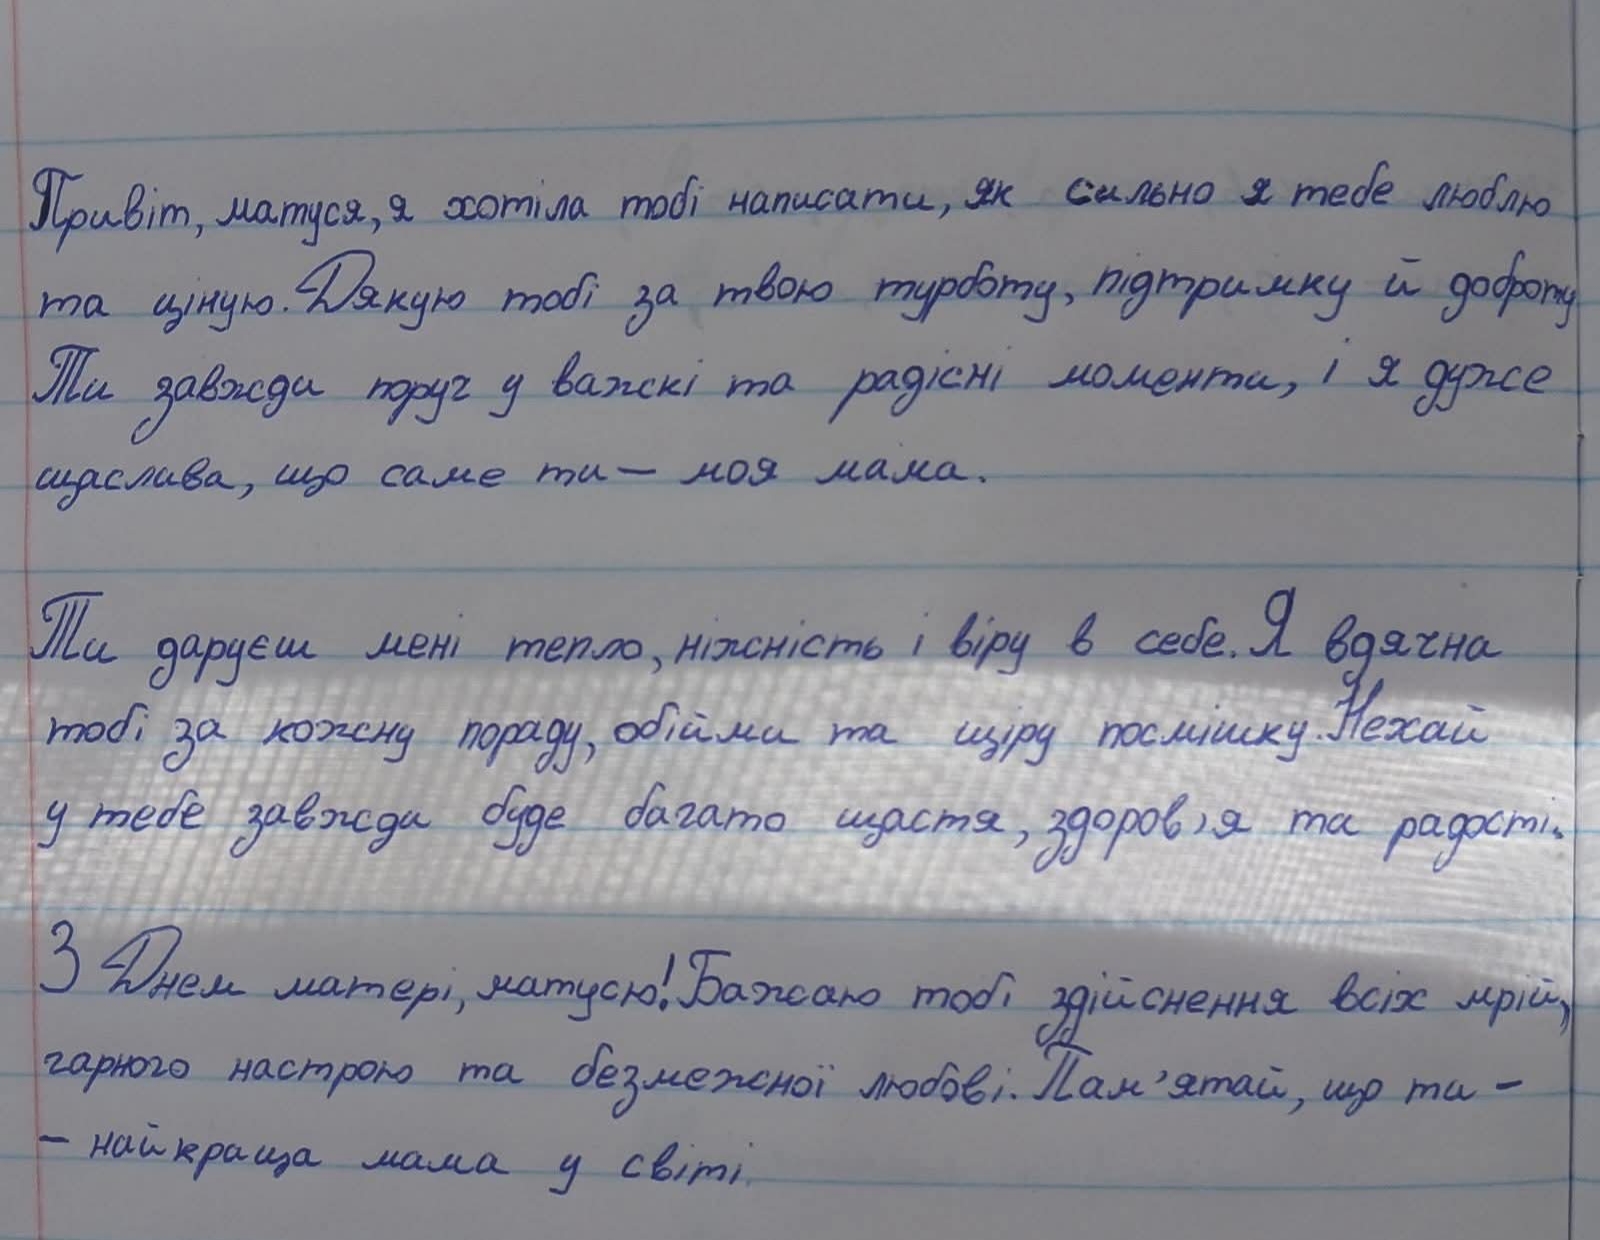 Привіт, матуся, я хотіла тобі написати, як сильно я тебе люблю
та ціную. Дякую тобі за твою турботу, підтримку й доброту
Ти завжди поруч у важкі та радісні моменти, і я дуже
щаслива, що саме ти — моя мама.
Ти даруєш мені тепло, ніжність і віру в себе. Я вдячна
тобі за кожну пораду, обійми та щіру посмішку. Нехай
у тебе завжди буде багато щастя, здоров'я та радості.
З Днем матері, матусю! Бажаю тобі здійснення всіх мрій,
гарного настрою та безмежної любові. Пам'ятай, що ти –
– найкраща мама у світі.